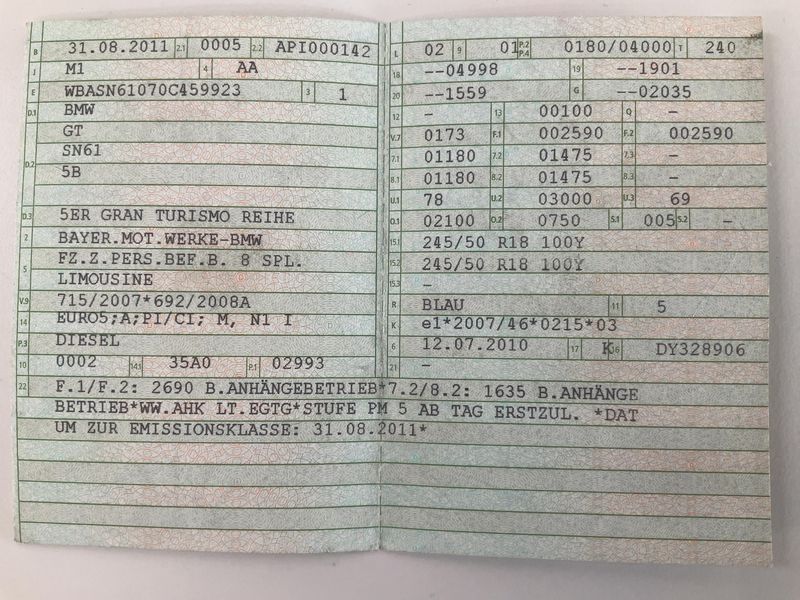 B 31.08.2011 2.1 0005 2.2 API000142
J M1 4 AA
E WBASN61070C459923 3 1
D.1 BMW
GT
D.2 SN61
5B
D.3 5ER GRAN TURISMO REIHE
2 BAYER.MOT.WERKE-BMW
5 FZ.Z.PERS.BEF.B. 8 SPL.
LIMOUSINE
V.9 715/2007*692/2008A
14 EURO5;A;PI/CI; M, N1 I
P.3 DIESEL
10 0002 14.1 35A0 P.1 02993
L 02 9 01 P.2 P.4 0180/04000 T 240
18 --04998 19 --1901
20 --1559 G --02035
12 – 13 00100 Q –
V.7 0173 F.1 002590 F.2 002590
7.1 01180 7.2 01475 7.3 –
8.1 01180 8.2 01475 8.3 –
U.1 78 U.2 03000 U.3 69
O.1 02100 O.2 0750 S.1 005 S.2 –
15.1 245/50 R18 100Y
15.2 245/50 R18 100Y
15.3 –
R BLAU 11 5
K e1*2007/46*0215*03
6 12.07.2010 17 K 16 DY328906
21 –
22 F.1/F.2: 2690 B.ANHÄNGEBETRIEB*7.2/8.2: 1635 B.ANHÄNGE
BETRIEB*WW.AHK LT.EGTG*STUFE PM 5 AB TAG ERSTZUL. *DAT
UM ZUR EMISSIONSKLASSE: 31.08.2011*